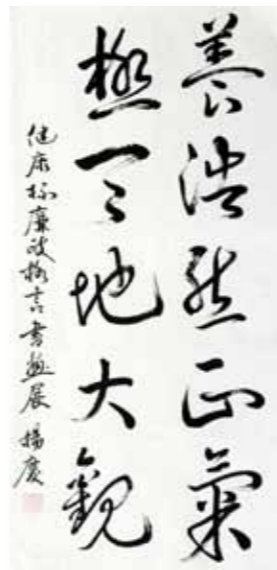 養浩然正氣
極天地大觀
健康杯廉政格言書畫展 楊慶